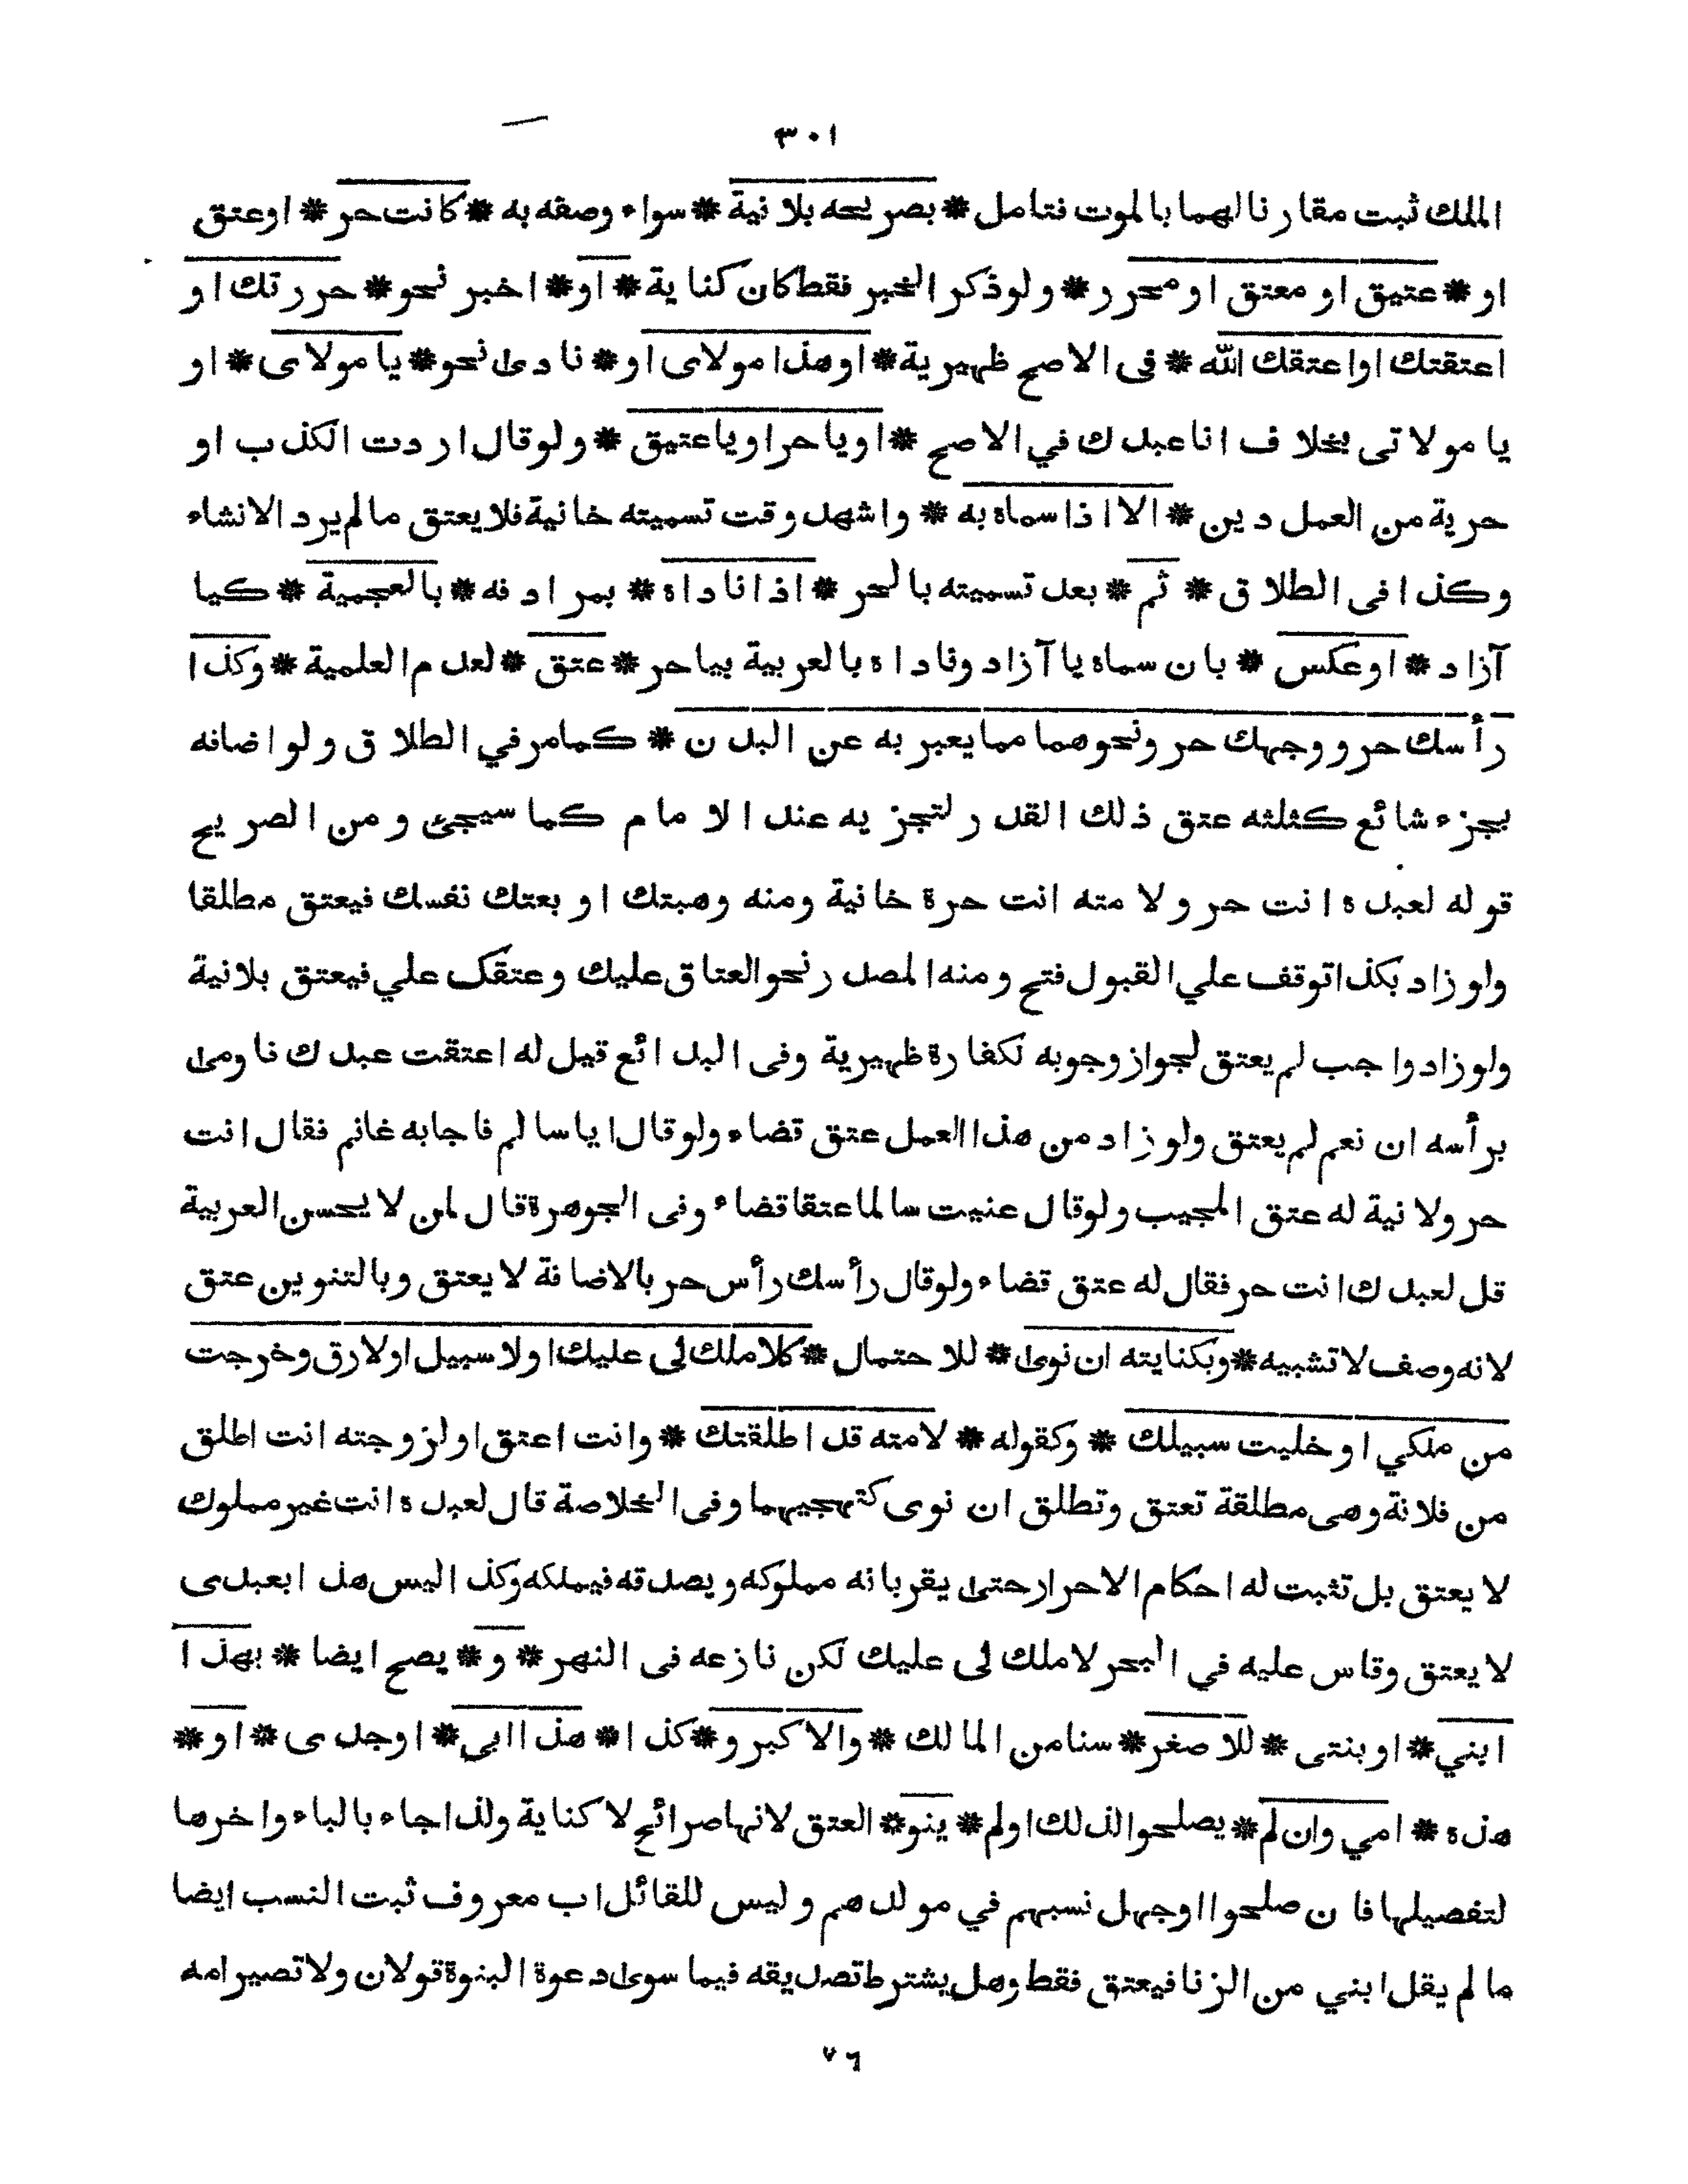 ٣٠١
الملك ثبت مقارنا لهما بالموت فتامل * بصريحه بلا نية * سواء وصفه به * كانت حر * اوعتق
او * عتيق او معتق او محرر * ولو ذكر الخبر فقط كان كناية * او * اخبر نحو * حررتك او
اعتقتك او اعتقك الله * فى الاصح ظهيرية * او هذا مولاى او * نادى نحو * يا مولاى * او
يا مولاتى بخلاف انا عبدك في الاصح * او يا حر او يا عتيق * ولو قال اردت الكذب او
حرية من العمل دين * الا اذا سماه به * واشهد وقت تسميته خانية فلا يعتق مالم يرد الانشاء
وكذا فى الطلاق * ثم * بعد تسميته بالحر * اذا ناداه * بمرادفه * بالعجمية * كيا
آزاد * او عكس * بان سماه يا آزاد وناداه بالعربية بيا حر * عتق * لعدم العلمية * وكذا
رأسك حر ووجهك حر ونحوهما مما يعبر به عن البدن * كمامر في الطلاق ولو اضافه
بجزء شائع كثلثه عتق ذلك القدر لتجزيه عند الامام كما سيجئ ومن الصريح
قوله لعبده انت حر ولامته انت حرة خانية ومنه وهبتك او بعتك نفسك فيعتق مطلقا
ولو زاد بكذا توقف علي القبول فتح ومنه المصدر نحو العتاق عليك وعتقك علي فيعتق بلانية
ولو زاد واجب لم يعتق لجواز وجوبه لكفارة ظهيرية وفى البدائع قيل له اعتقت عبدك فاومى
برأسه ان نعم لم يعتق ولو زاد من هذا العمل عتق قضاء ولو قال ايا سالم فاجابه غانم فقال انت
حر ولا نية له عتق المجيب ولو قال عنيت سالما عتقا قضاء وفى الجوهرة قال لمن لا يحسن العربية
قل لعبدك انت حر فقال له عتق قضاء ولو قال رأسك رأس حر بالاضافة لا يعتق وبالتنوين عتق
لانه وصف لا تشبيه * وبكنايته ان نوى * للاحتمال * كلا ملك لى عليك او لا سبيل او لا رق وخرجت
من ملكي او خليت سبيلك * وكقوله * لامته قد اطلقتك * وانت اعتق او لزوجته انت اطلق
من فلانة وهى مطلقة تعتق وتطلق ان نوى كتهجيهما وفى الخلاصة قال لعبده انت غير مملوك
لا يعتق بل تثبت له احكام الاحرار حتى يقر بانه مملوكه ويصدقه فيملكه وكذا ليس هذا بعبدى
لا يعتق وقاس عليه في البحر لا ملك لى عليك لكن نازعه فى النهر * و * يصح ايضا * بهذا
ابني * او بنتى * للاصغر * سنا من المالك * والاكبر و * كذا * هذا ابي * او جدى * او *
هذه * امي وان لم * يصلحوا لذلك او لم * ينو * العتق لانها صرائح لا كناية ولذا جاء بالباء واخرها
لتفصيلها فان صلحوا وجهل نسبهم في مولدهم وليس للقائل اب معروف ثبت النسب ايضا
ما لم يقل ابني من الزنا فيعتق فقط وهل يشترط تصديقه فيما سوى دعوة البنوة قولان ولا تصير امه
٧٦